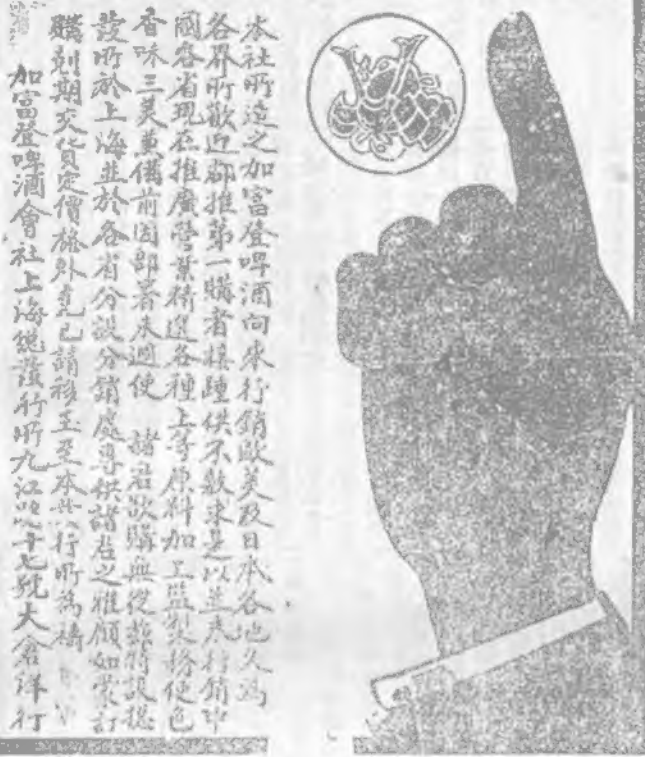 本社所造之加富登啤酒向來行銷歐美及日本各地久爲
各界所歡迎群推第一購者接踵供不敷求是以並未行銷中
國各省現在推廣營業精選各種上等原料加工監製務使色
香味三美兼備前因部署未週使 諸君欲購無從茲特設總
發所於上海並於各省分設分銷處專供諸君之雅顧如蒙訂
購尅期交貨定價格外克己請移玉至本發行所爲禱
加富登啤酒會社上海總發行所九江路十七號大倉洋行